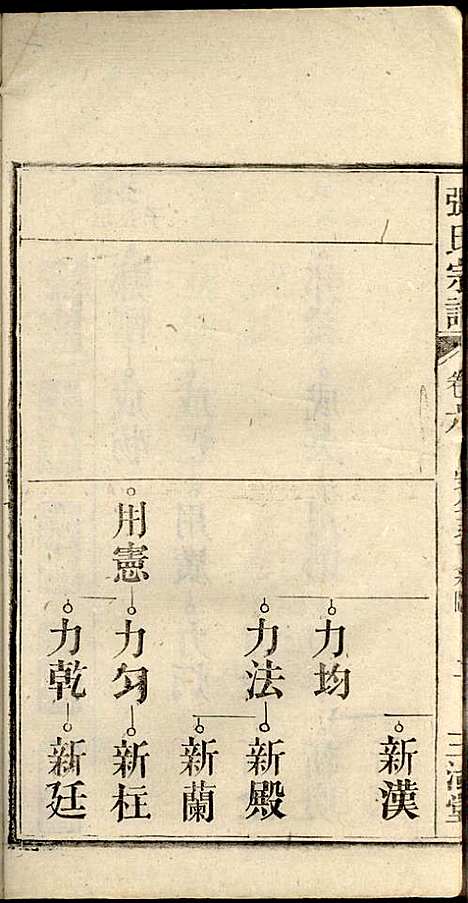 張氏宗譜
卷
新漢
力均
力法
新殿
新蘭
用憲
力勻
新枉
力乾
新廷